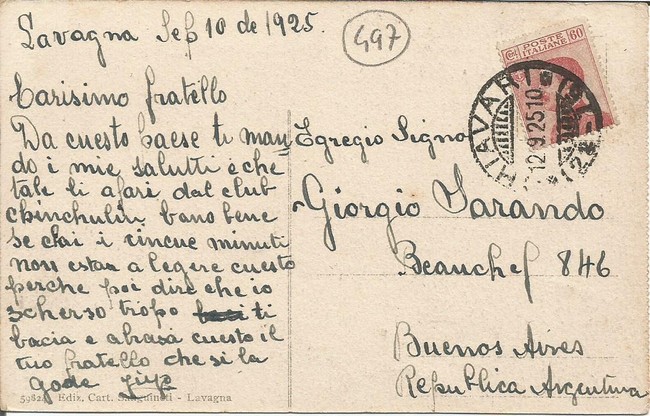 Lavagna Sep 10 de 1925.
497
Carisimo fratello
Da cuesto paese ti man
do i mie salutti e che
tale li afari dal club
chinchulin bano bene
se chai i cincue minuti
non estar a legere cuesto
perche poi dire che io
scherso tropo ti
bacia e abrasa cuesto il
tuo fratello che si la
gode
59824 Ediz. Cart. Sanguineti - Lavagna
POSTE ITALIANE
60
CHIAVARI
12.9.25 10
Egregio Signo
Giorgio Sarando
Beauchef 846
Buenos Aires
Republica Argentina